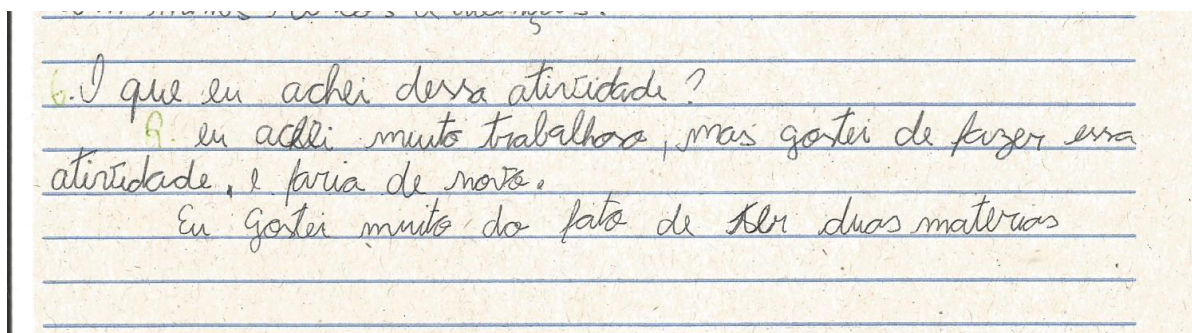 6. O que eu achei dessa atividade?
R. eu achei muito trabalhoso, mas gostei de fazer essa
atividade, e faria de novo.
Eu Gostei muito do fato de ser duas materias